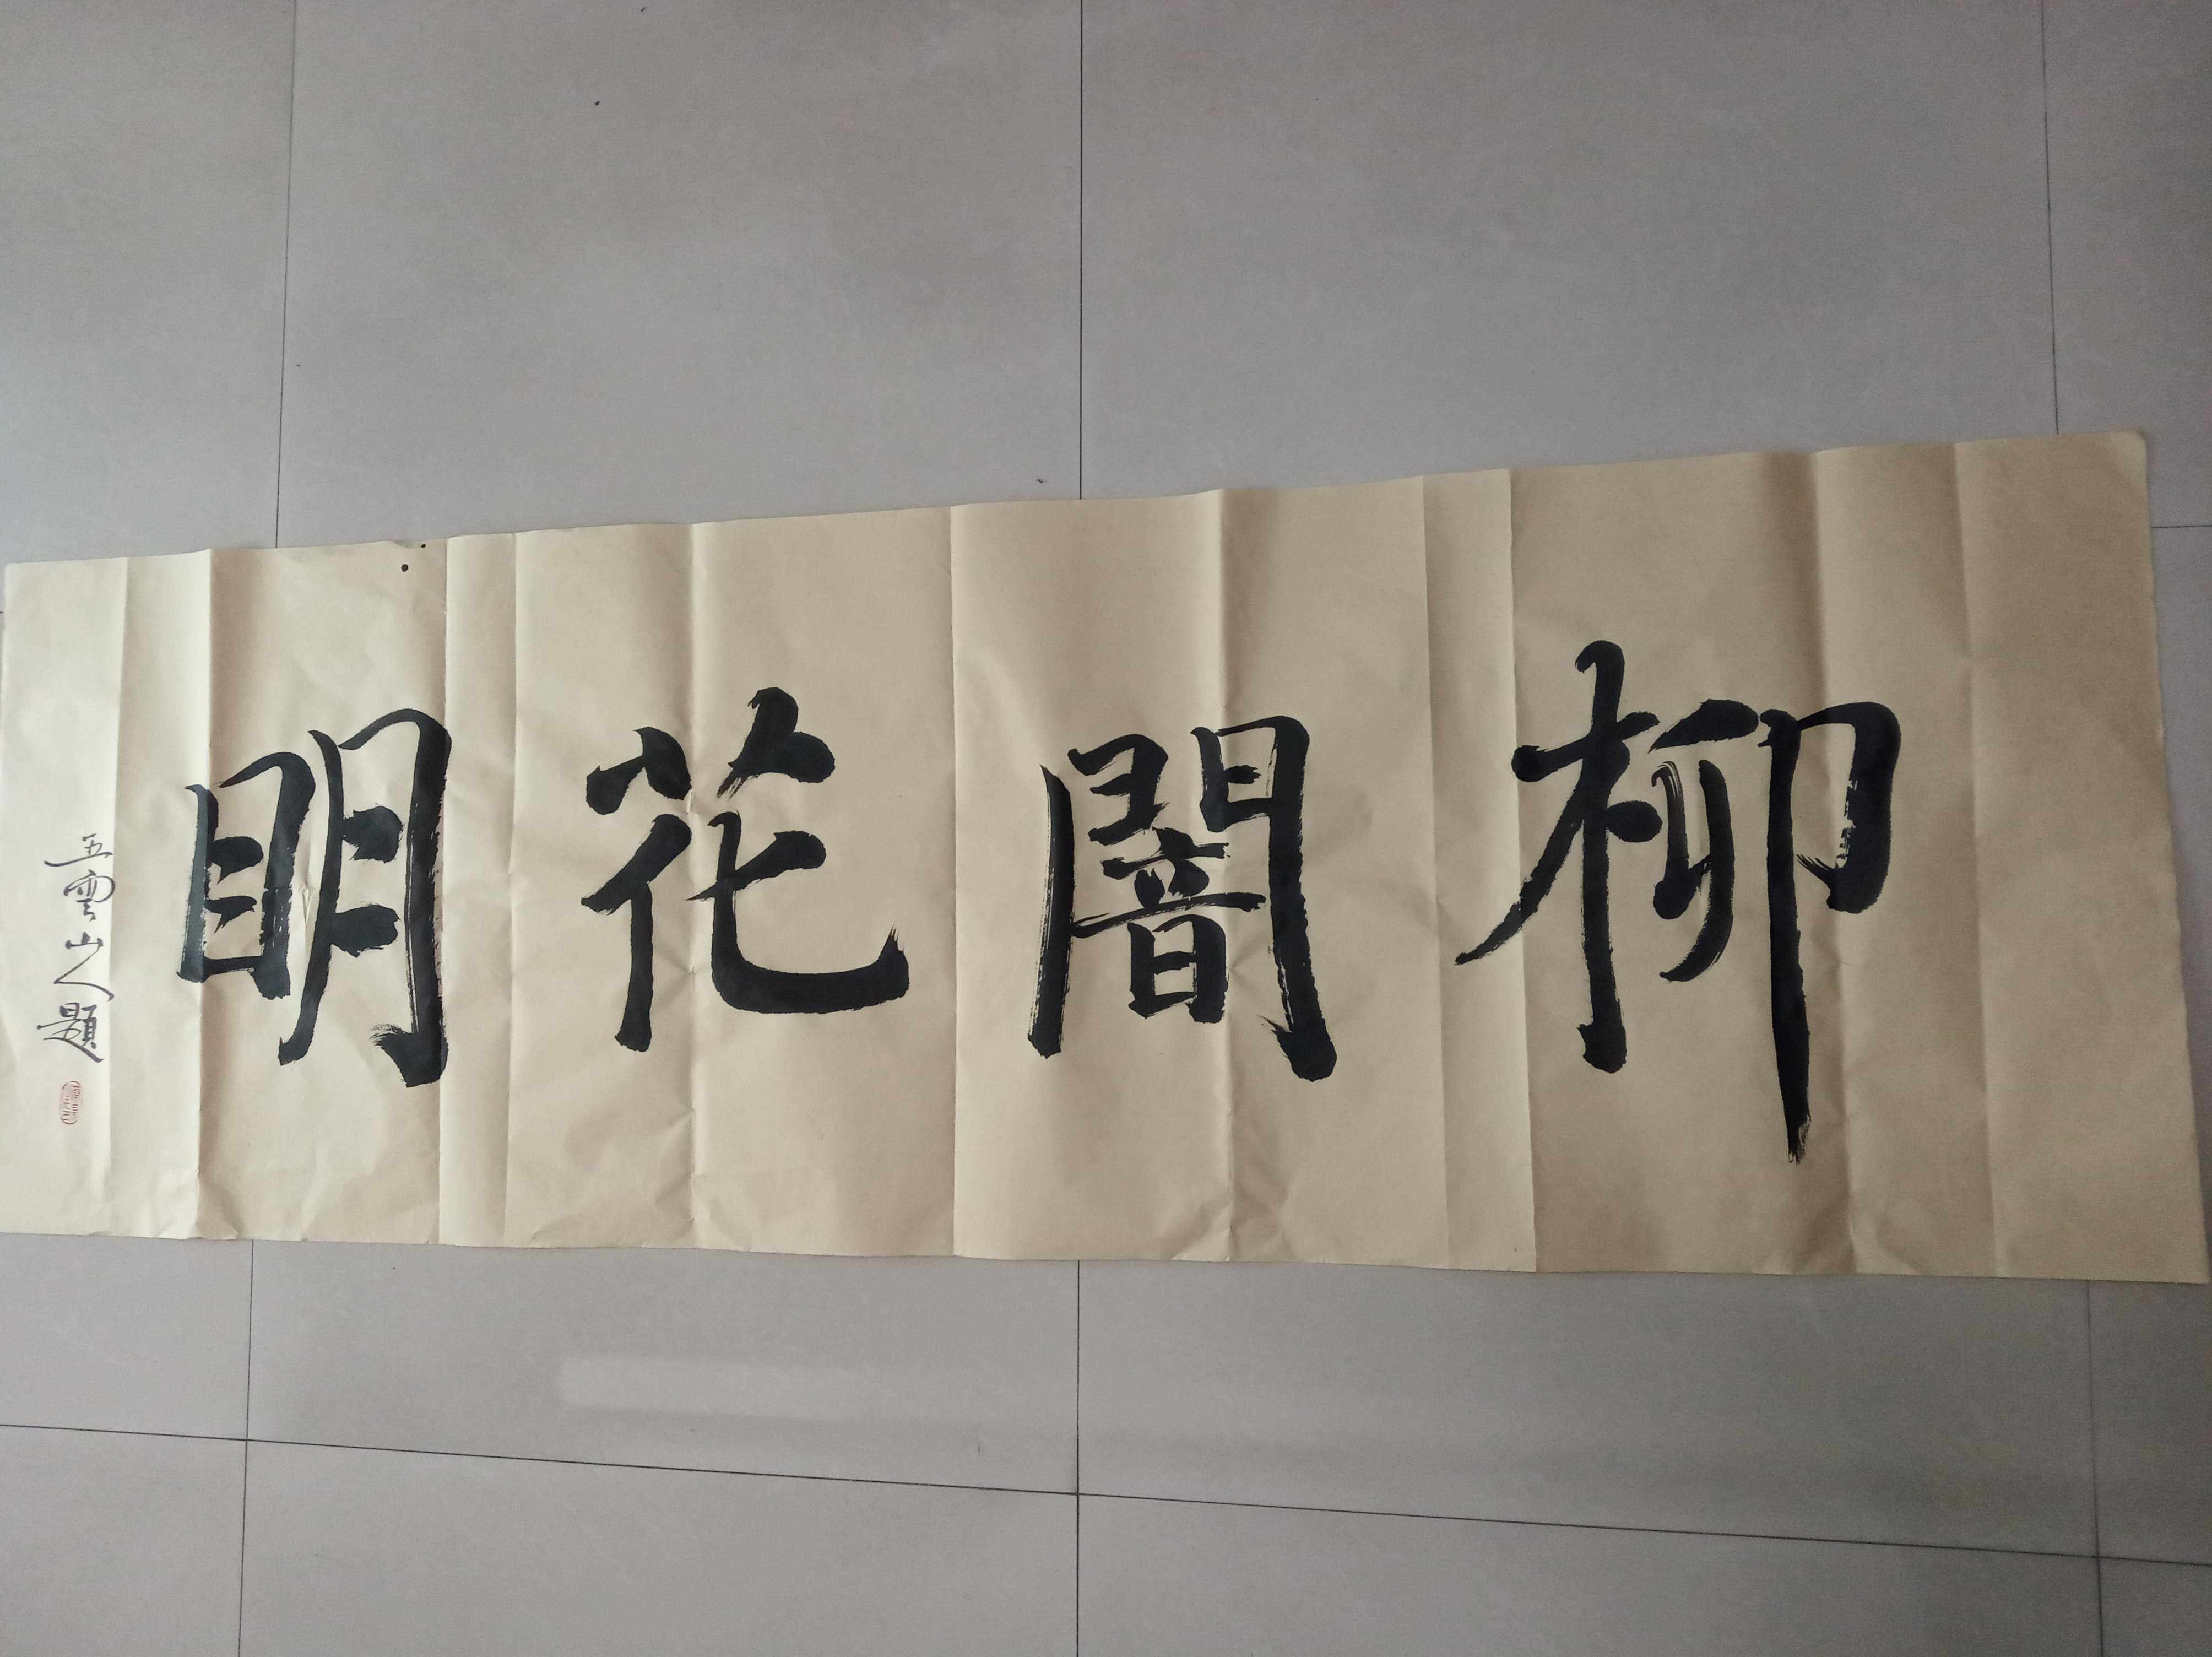 柳闇花明
五雲山人題